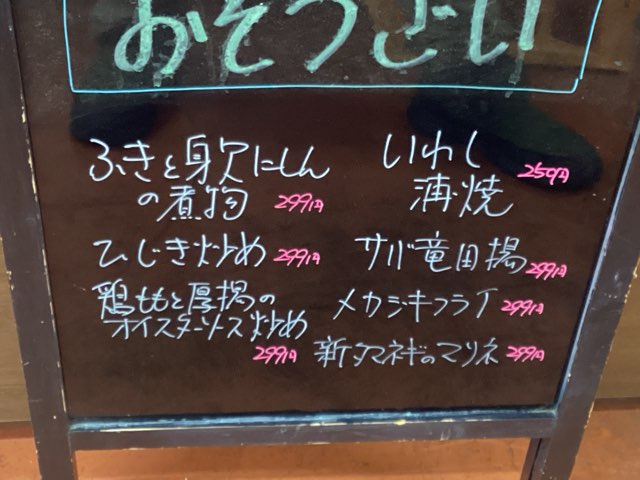 おそうざい
ふきと身欠にしん
の煮物 299円
ひじき炒め 299円
鶏ももと厚揚の
オイスターソース炒め
299円
いわし
蒲焼 250円
サバ竜田揚 299円
メカジキフライ 299円
新タマネギのマリネ 299円